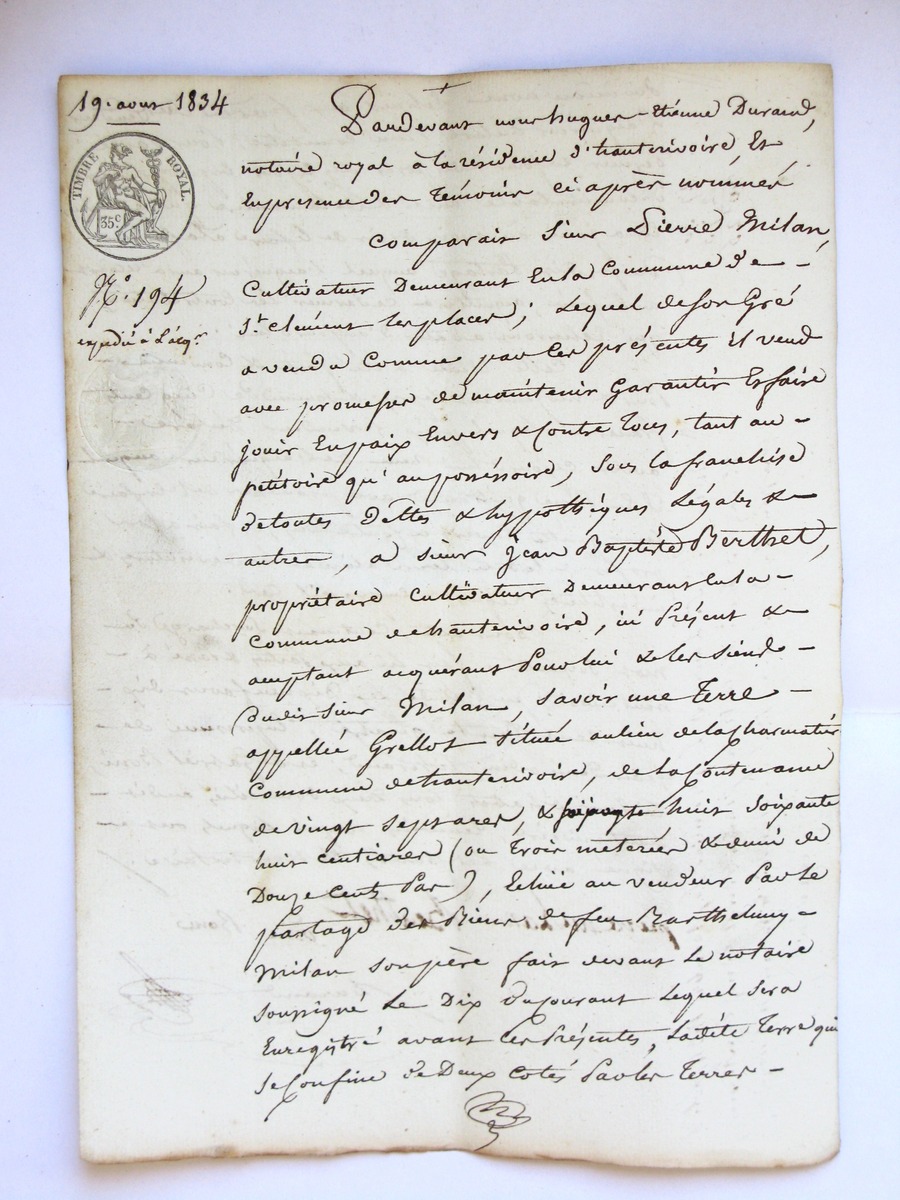 19. aout 1834
TIMBRE ROYAL.
35c.
No. 194
expédié à l'acqr.
Pardevant nous hugues-Etienne Durand,
notaire royal à la résidence d'hauterivoire, Et
En presence des Témoins ci après nommés
Comparait Sieur Pierre Milan,
Cultivateur Demeurant En la Commune de -
St. Clément les places; Lequel de son Gré
a vendu Comme par Ces présentes il vend
avec promesses de maintenir Garantir Et faire
jouir En paix Envers & Contre Tous, tant au -
petitoire qu'au posséssoire, Sous la franchise
de toutes Dettes & hypothèques Légales &
autres, a Sieur Jean Baptiste Berthet,
propriétaire Cultivateur Demeurant En la -
Commune de hauterivoire, ici Présent &
acceptant acquérant Pour lui & les Siens -
Dudit Sieur Milan, Savoir une Terre -
appellée Grellot Située au lieu de la
Commune de hauterivoire, de la Contenance
de vingt Sept ares, & huit Soixante
huit Centiares (ou Trois meterées & demi de
Douze Cents Pas), Echue au vendeur Par le
partage des Biens de feu Barthelemy -
Milan Son père fait devant Le notaire
soussigné Le Dix du Courant Lequel Sera
Enregistré avant Ces Présentes, Ladite Terre qui
Se Confine de Deux Cotés Par les Terres -